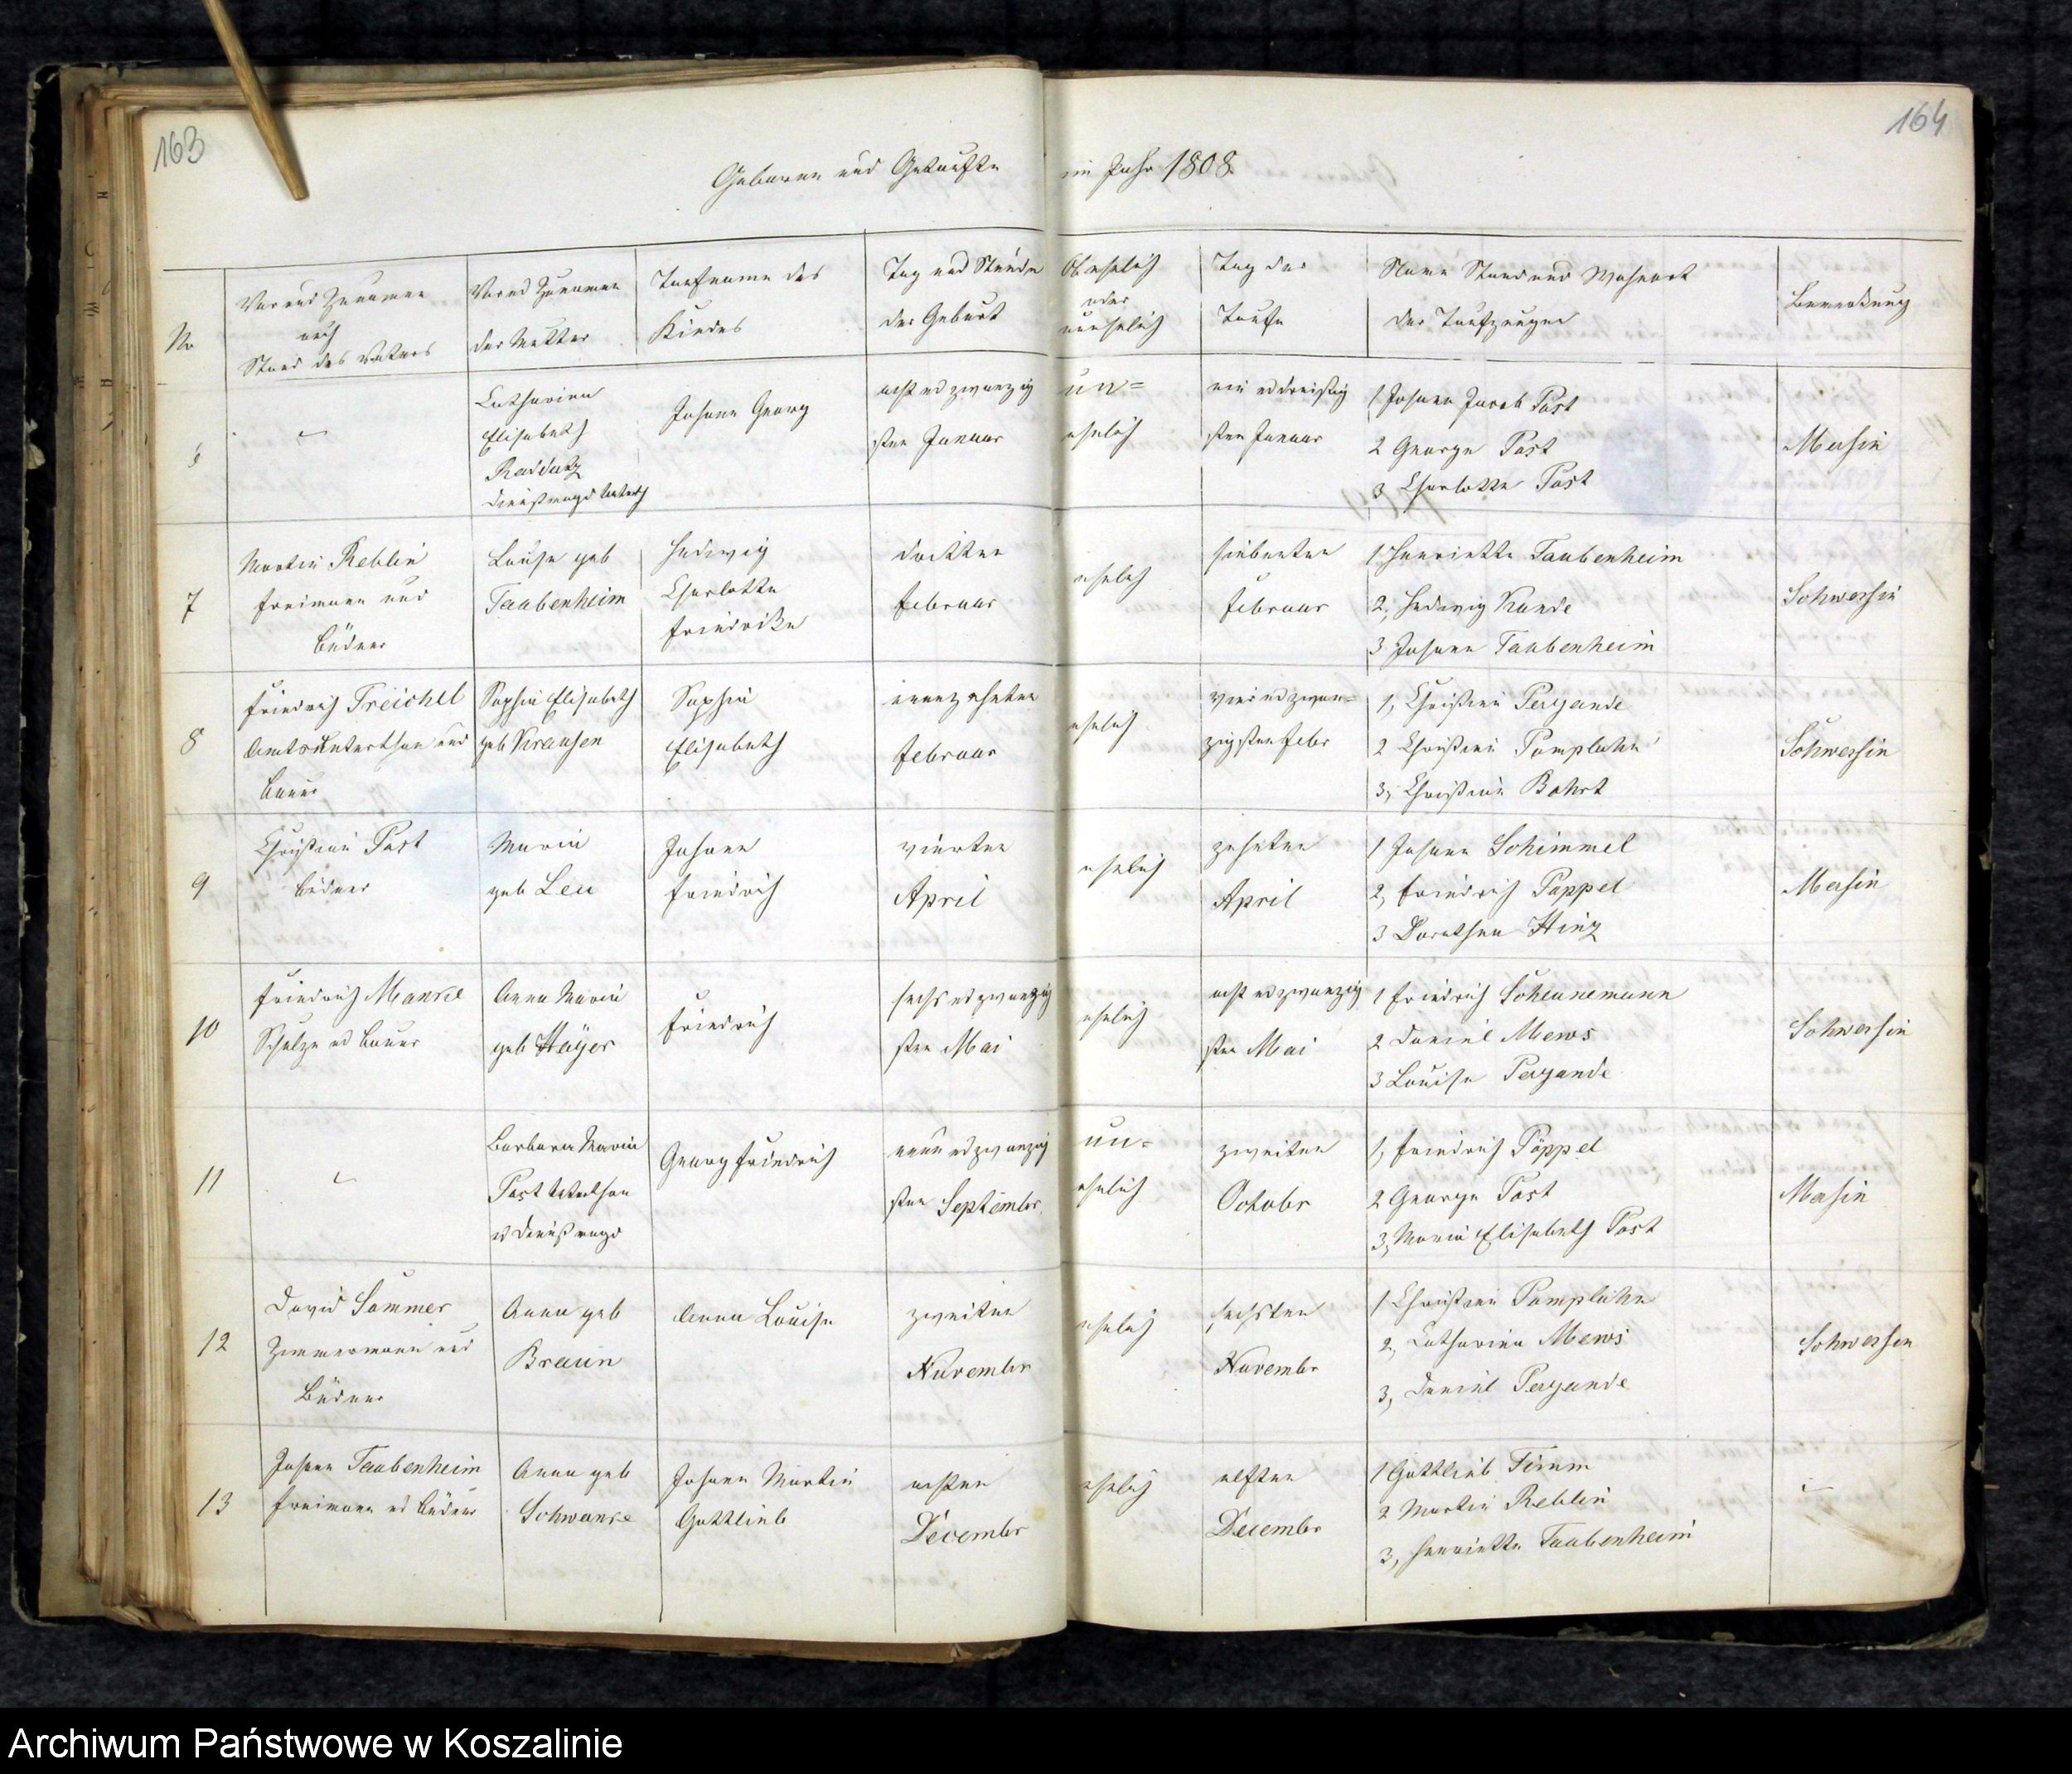 163
164
Geborne und Getaufte im Jahr 1808
No
Vor und Zunamen
auch
Stand des Vaters
Vor und Zunamen
der Mutter
Taufname des
Kindes
Tag und Stunde
der Geburt
Ob ehelich
oder
unehelich
Tag der
Taufe
Name Stand und Wohnort
der Taufzeugen
Bemerkung
6
Catharina
Elisabeth
Raddatz
Dienstmagd
Johann Georg
acht ud zwanzig
sten Januar
un=
ehelich
ein ud dreißig
sten Januar
1 Johann Jacob Past
2 George Past
3 Charlotte Past
Mersin
7
Martin Reblin
Freimann und
Büdner
Louise geb
Taubenheim
Hedwig
Charlotte
Friedrike
dritten
Februar
ehelich
siebenten
Februar
1 Henriette Taubenheim
2, Hedwig Kande
3 Johann Taubenheim
Schwessin
8
Friedrich Treichel
Amtsunterthan und
Bauer
Sophia Elisabeth
geb Krausen
Sophia
Elisabeth
neunzehnten
Februar
ehelich
vier ud zwan=
zigsten Febr
1, Christian Pergande
2 Christian Pamplühn
3, Christian Bohrt
Schwessin
9
Christian Past
Büdner
Maria
geb Leu
Johann
Friedrich
vierten
April
ehelich
zehnten
April
1 Johann Schimmel
2, Friedrich Pöppel
3 Dorothea Hinz
Mersin
10
Friedrich Manke
Schulze ud Bauer
Anna Maria
geb Häger
Friedrich
sechs ud zwanzig
sten Mai
ehelich
acht ud zwanzig
sten Mai
1 Friedrich Scheunemann
2 Daniel Mews
3 Louise Pergande
Schwessin
11
Barbara Maria
Past Unterthan
ud Dienstmagd
Georg Friedrich
neun ud zwanzig
sten Septembr.
un=
ehelich
zweiten
Octobr
1, Friedrich Pöppel
2 George Past
3, Maria Elisabeth Past
Mersin
12
David Sommer
Zimmermann und
Büdner
Anna geb
Braun
Anna Louise
zweiten
Novembr
ehelich
sechsten
Novembr
1 Christian Pamplühn
2, Catharina Mews
3, Daniel Pergande
Schwessin
13
Johann Taubenheim
Freimann ud Büdner
Anna geb
Schwanke
Johann Martin
Gottlieb
achten
Decembr
ehelich
elften
Decembr
1 Gottlieb Timm
2 Martin Reblin
3, Henriette Taubenheim
Archiwum Państwowe w Koszalinie